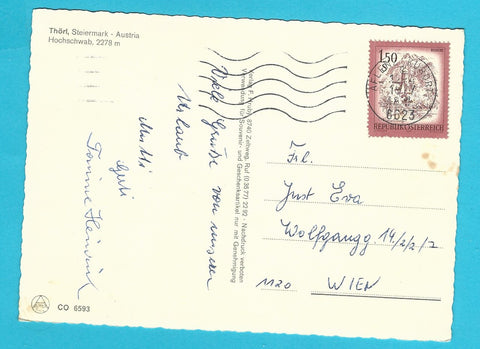 Thörl, Steiermark - Austria
Hochschwab, 2278 m
Viele Grüße von unserem
Urlaub
Mutti
Gerti
Heinrich
8740 Zeltweg, Ruf (0 35 77) 22 92 - Nachdruck verboten
Verwendung für Souvenir- und Geschenkartikel nur mit Genehmigung
1.50
8623
REPUBLIK ÖSTERREICH
Frl.
Just Eva
Wolfgangg. 14/2/2/7
1120 WIEN
CO 6593